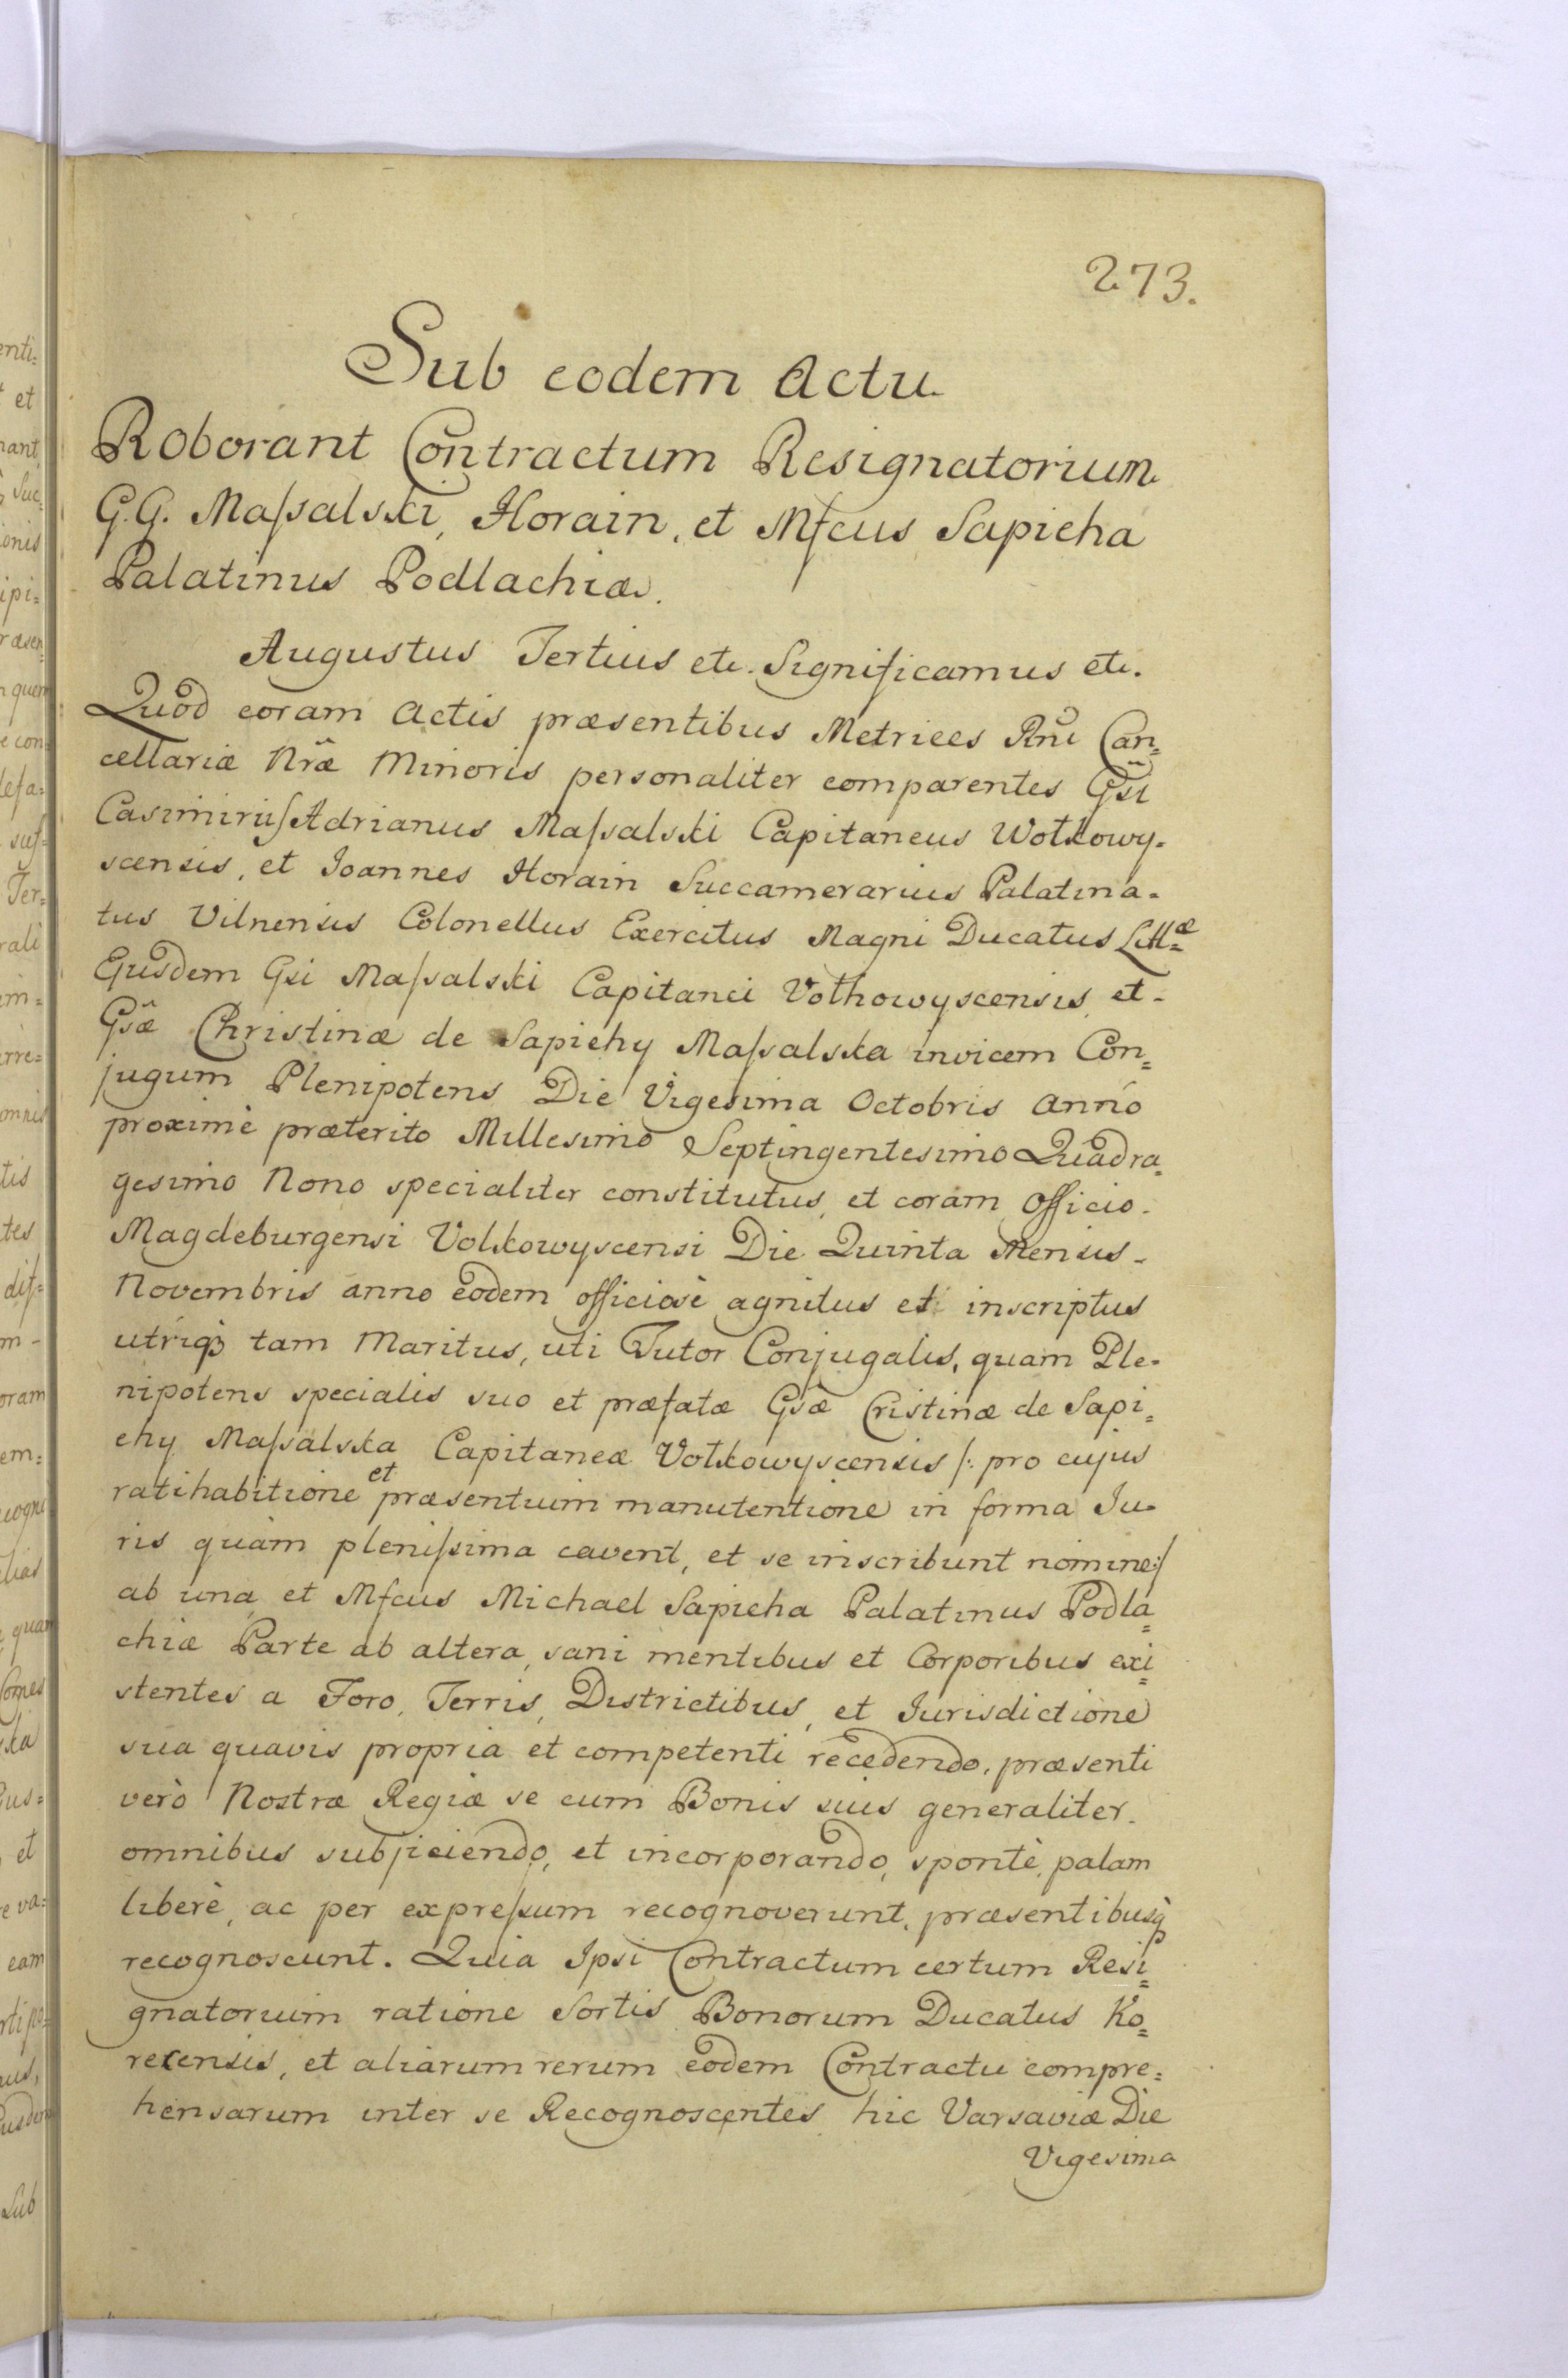 273.
Sub eodem Actu
Roborant Contractum Resignatorium
G.G. Maſsalski, Horain, et Mfcus Sapieha
Palatinus Podlachiæ.
Augustus Tertius etc. Significamus etc.
Quod coram Actis præsentibus Metrices Rñi Can=
cellariæ Nrã Minoris personaliter comparentes Gsi
Casimirus Adrianus Maſsalski Capitaneus Wołkowy=
scensis, et Joannes Horain Succamerarius Palatina=
tus Vilnensis Colonellus Exercitus Magni Ducatus Litt=æ
Ejusdem Gsi Maſsalski Capitanei Volhowyscensis, et
Gsæ Christinæ de Sapiehy Maſsalska invicem Con=
jugum Plenipotens Die Vigesima Octobris Anno
proximè præterito Millesimo Septingentesimo Quadra=
gesimo Nono specialiter constitutus, et coram Officio
Magdeburgensi Volkowyscensi Die Quinta Mensis
Novembris anno eodem officiosè agnitus et inscriptus
utriq3 tam Maritus, uti Tutor Conjugalis, quam Ple=
nipotens specialis suo et præfatæ Gsæ Cristinæ de Sapi=
ehy Maſsalska Capitaneæ Volkowyscensis /: pro cujus
ratihabitione et præsentium manutentione in forma Ju=
ris quàm pleniſsima cavent, et se inscribunt nomine :/
ab una et Mfcus Michael Sapieha Palatinus Podla=
chiæ Parte ab altera, sani mentibus et Corporibus exi=
stentes a Foro, Terris, Districtibus, et Jurisdictione
sua quavis propria et competenti recedendo, præsenti
verò Nostræ Regiæ se cum Bonis suis generaliter
omnibus subjiciendo, et incorporando, spontè, palam
liberè, ac per expreſsum recognoverunt, præsentibusq
recognoscunt. Quia Ipsi Contractum certum Resi=
gnatorium ratione Sortis Bonorum Ducatus Ko=
recensis, et aliarum rerum eodem Contractu compre=
hensarum inter se Recognoscentes hic Varsaviæ Die
Vigesima